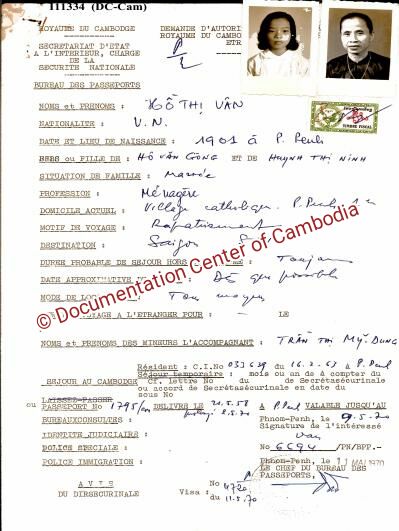 111334 (DC-Cam)
ROYAUME DU CAMBODGE
SECRETARIAT D'ETAT
A L'INTERIEUR, CHARGE
DE LA
SECURITE NATIONALE
BUREAU DES PASSEPORTS
DEMANDE D'AUTORI
ROYAUME DU CAMBO
ETR
NOMS et PRENOMS : HỒ THỊ VÂN
NATIONALITE : V.N.
DATE ET LIEU DE NAISSANCE : 1901 à P. Penh
FILS ou FILLE DE : HỒ VĂN CÔNG ET DE HUỲNH THỊ NINH
SITUATION DE FAMILLE : Mariée
PROFESSION : Ménagère
DOMICILE ACTUEL : Village catholique P. Penh
MOTIF DE VOYAGE : Rapatriement
DESTINATION : Saigon
DUREE PROBABLE DE SEJOUR HORS : Toujours
DATE APPROXIMATIVE : Dès que possible
MODE DE LOC : Tous moyens
A L'ETRANGER POUR : LE
© Documentation Center of Cambodia
NOMS et PRENOMS DES MINEURS L'ACCOMPAGNANT : TRẦN THỊ MỸ DUNG
Résident : C.I.No 033639 du 16.2.63 à P. Penh
Séjour temporaire : mois ou an de à compter du
SEJOUR AU CAMBODGE Cf. lettre No du de Secrétaséurinale
ou accord de Secrétaséurinale en date du
sous No
LAISSEZ-PASSER
ou PASSEPORT No 1795 DELIVRE LE 21.5.58 A P. Penh VALABLE JUSQU'AU
BUREAUX CONSULTES : Phnom-Penh, le 9.5.70
IDENTITE JUDICIAIRE : Signature de l'intéressé
Van
POLICE SPECIALE : No 6694 /PN/BPP.-
POLICE IMMIGRATION : Phnom-Penh, le 11 MAI 1970
LE CHEF DU BUREAU DES
PASSEPORTS,
AVIS
DU DIRSECURINALE
No 4720
Visa : du 11.5.70